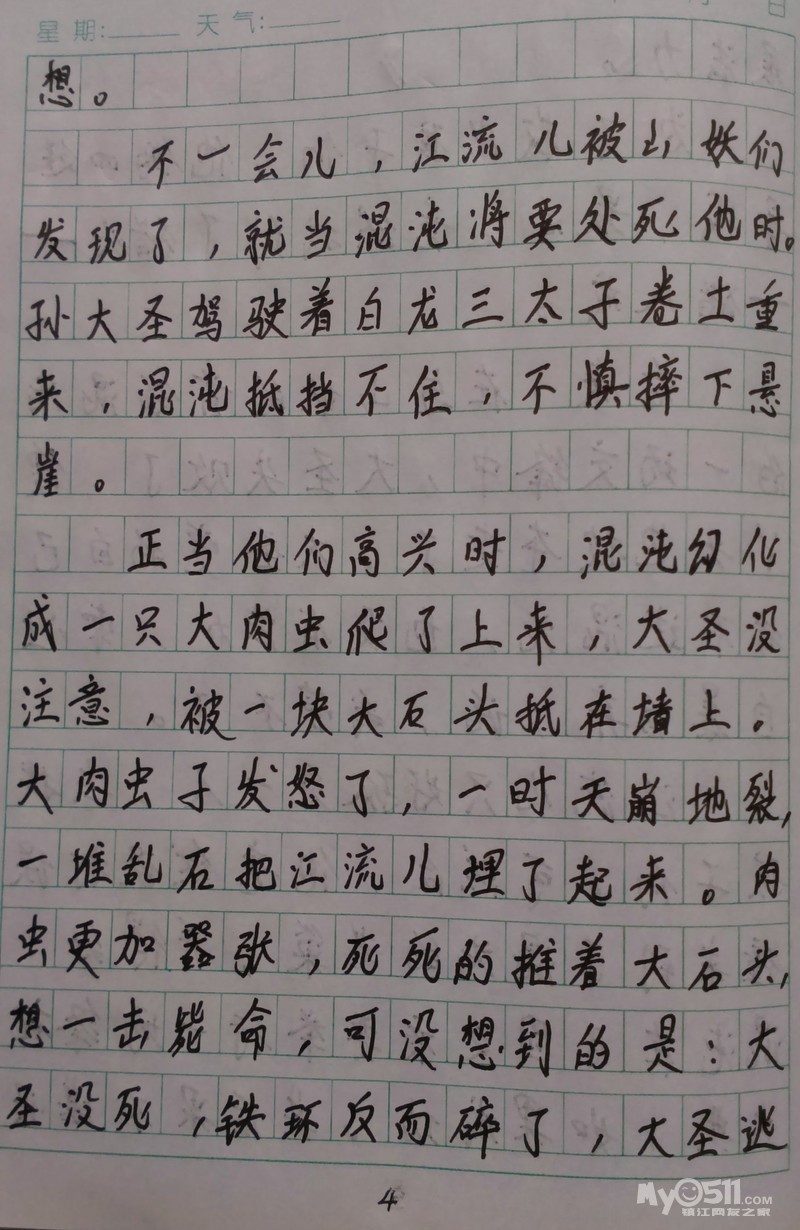 星期: 天气: 日
想。
不一会儿，江流儿被山妖们
发现了，就当混沌将要处死他时。
孙大圣驾驶着白龙三太子卷土重
来，混沌抵挡不住，不慎摔下悬
崖。
正当他们高兴时，混沌幻化
成一只大肉虫爬了上来，大圣没
注意，被一块大石头抵在墙上。
大肉虫子发怒了，一时天崩地裂，
一堆乱石把江流儿埋了起来。肉
虫更加嚣张，死死的推着大石头，
想一击毙命，可没想到的是：大
圣没死，铁环反而碎了，大圣逃
4
My0511.COM
镇江网友之家